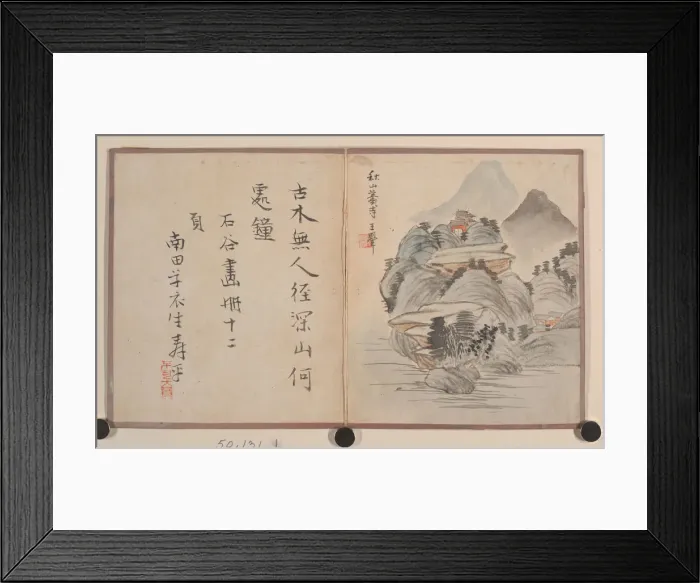 秋山蕭寺 王翬
古木無人徑深山何
處鐘
石谷畫册十二
頁
南田草衣生壽平
50.131